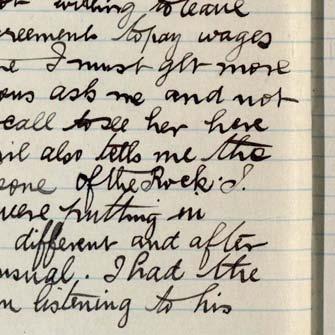 ot willing to leave
greements to pay wages
ne I must get more
ous ask me and not
call to see her here
ril also tells me the
eone of the Rock. I.
were putting in
different and after
nusual. I had the
n listening to his